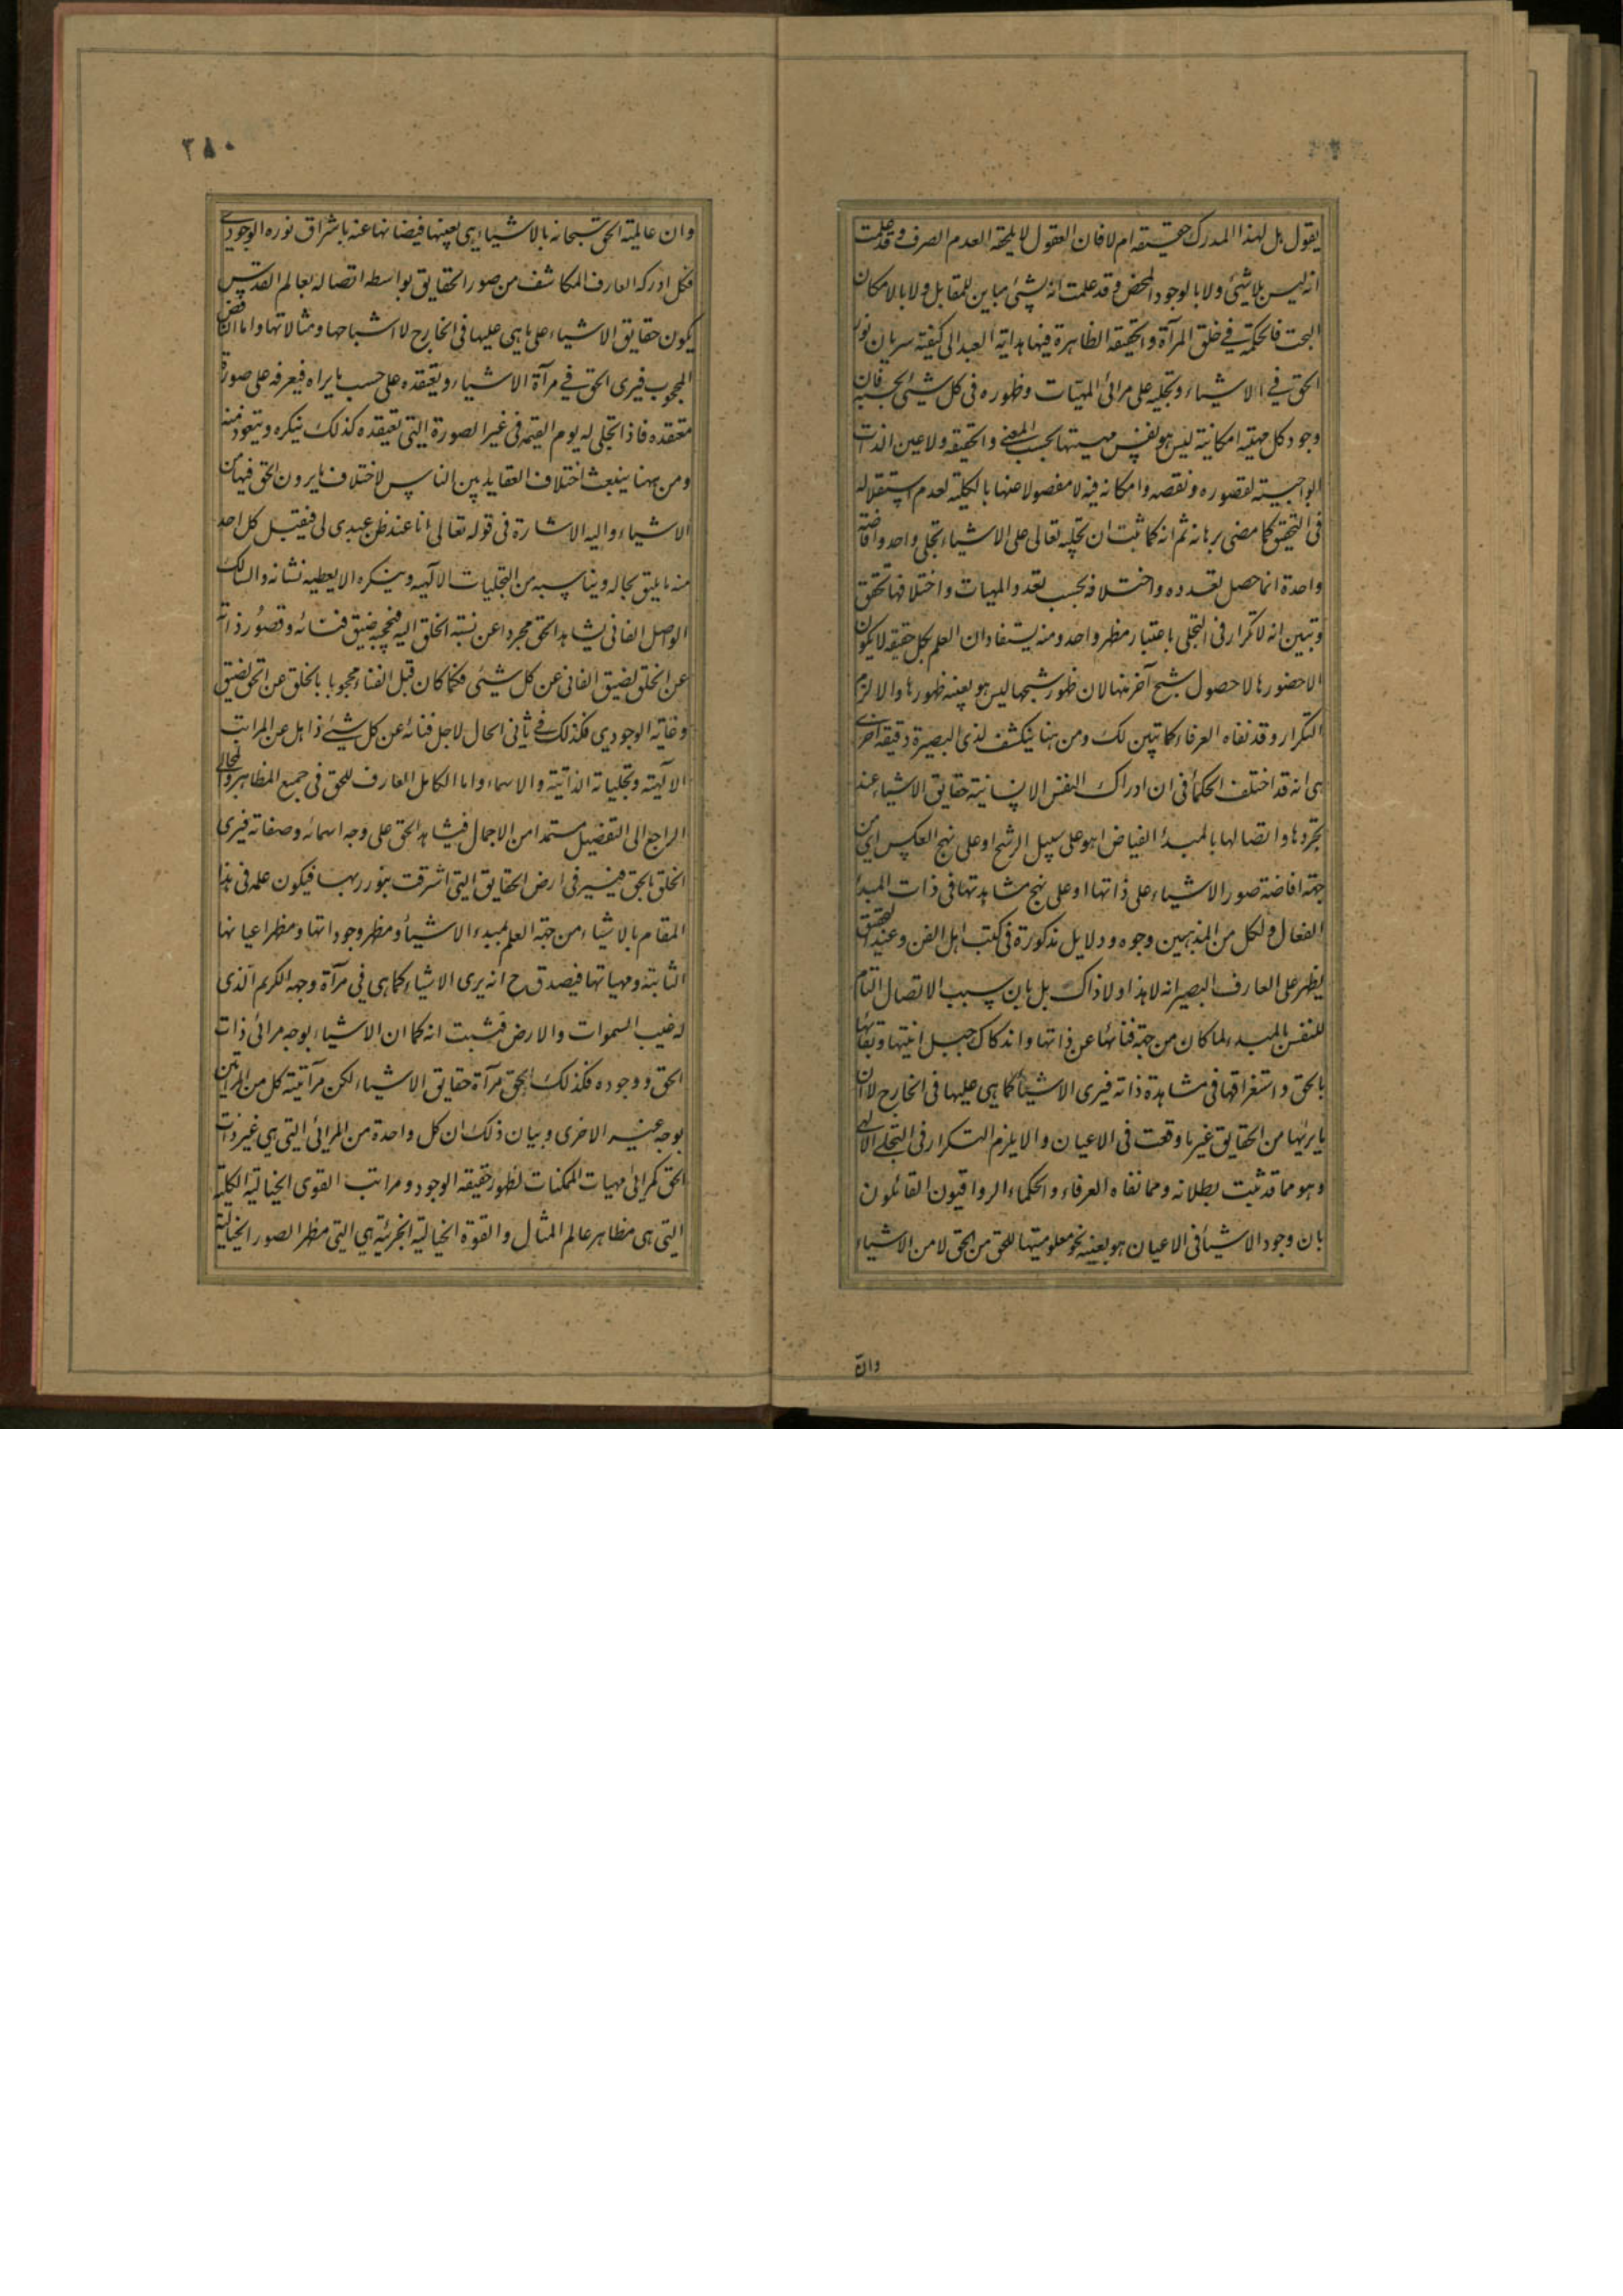 يقول بل لهذا المدرك حقيقه ام لا فان العقول لا يلحقه العدم الصرف وقد علمت
انه ليس بلا شيئ ولا بالوجود المحض وقد علمت انه بشيئ مباين للمقابل ولا بالامكان
البحت فالحكمة في خلق المرآة والحقيقه الظاهرة فيها هداية العبد الى كيفية سريان نور
الحق في الاشياء وتجليه على مرائى المهيات وظهوره فى كل شيئ بحسبه فان
وجود كل مهية امكانية ليس هو نفس مهيتها بحسب المعنى والحقيقه ولا عين الذات
الواجبيته لقصوره ونقصه وامكانه فيه لا مفصولا عنها بالكلية لعدم استقلاله
فى التحقق كما مضى برهانه ثم انه كما ثبت ان تجليه تعالى على الاشياء تجلى واحد وافاضة
واحدة انما حصل تعدده واختلافه بحسب تعدد المهيات واختلافها تحقق
وتبين انه لا تكرار فى التجلى باعتبار مظهر واحد ومنه يستفاد ان العلم بكل حقيقه لا يكون
الا حضورها لا حصول شبح آخر منها لان ظهور شبحها ليس هو بعينه ظهورها والا لزم
التكرار وقد نفاه العرفاء كما تبين لك ومن هنا ينكشف لذى البصيرة دقيقه اخرى
هى انه قد اختلف الحكماء فى ان ادراك النفس الانسانية حقايق الاشياء عند
تجردها واتصالها بالمبدء الفياض اهو على سبيل الرشح او على نهج العكس اى من
جهة افاضة صور الاشياء على ذاتها او على نهج مشاهدتها فى ذات المبدء
الفعال ولكل من المذهبين وجوه ودلايل مذكورة فى كتب اهل الفن وعند التحقيق
يظهر على العارف البصير انه لا هذا ولا ذاك بل بان سبب الاتصال التام
للنفس بالمبدء لما كان من جهة فنائها عن ذاتها واندكاك جبل انيتها وبقائها
بالحق واستغراقها فى مشاهدة ذاته فيرى الاشياء كما هى عليها فى الخارج لا ان
ما يريها من الحقايق غير ما وقعت فى الاعيان والا يلزم التكرار فى التجلى الالهى
وهو مما قد ثبت بطلانه ومما نفاه العرفاء والحكماء الرواقيون القائلون
بان وجود الاشياء فى الاعيان هو بعينه نحو معلوميتها للحق من الحق لا من الاشياء
وان
٣٨٠
وان عالمية الحق سبحانه بالاشياء هى بعينها فيضانها عنه باشراق نوره الوجودى
فكل ادركه العارف المكاشف من صور الحقايق بواسطه اتصاله بعالم القدس
يكون حقايق الاشياء على ما هى عليها فى الخارج لا اشباحها ومثالاتها واما الناقص
المحجوب فيرى الحق في مرآة الاشياء ويعتقده على حسب ما يراه فيعرفه على صورة
معتقده فاذا تجلى له يوم القيمه فى غير الصورة التى تعتقده كذلك ينكره ويتعوذ منه
ومن ههنا ينبعث اختلاف العقايد بين الناس لاختلاف ما يرون الحق فيها من
الاشياء واليه الاشارة فى قوله تعالى انا عند ظن عبدى لى فيقبل كل احد
منه ما يليق بحاله ويناسبه من التجليات الالهيه وينكره الا يعطيه نشانه والسالك
الواصل الفانى يشاهد الحق مجردا عن نسبة الخلق اليه فيحجبه ضيق فنائه وقصور ذاته
عن الخلق لضيق الفانى عن كل شيئى فكما كان قبل الفناء محجوبا بالخلق عن الحق لضيق
وعائه الوجودى فكذلك فى ثانى الحال لاجل فنائه عن كل شيئ ذاهل عن المراتب
الالهية وتجلياته الذاتية والاسماء واما الكامل العارف للحق فى جميع المظاهر والمجالى
الراجع الى التفصيل مستمدا من الاجمال فيشاهد الحق على وجه اسمائه وصفاته فيرى
الخلق بالحق فيسير فى ارض الحقايق التى اشرقت بنور ربها فيكون علمه فى هذا
المقام بالاشياء من جهة العلم بمبدء الاشياء ومظهر وجوداتها ومظهر اعيانها
الثابتة ومهياتها فيصدق ح انه يرى الاشياء كما هى في مرآة وجهه الكريم الذى
له غيب السموات والارض فثبت انه كما ان الاشياء بوجه مرائى ذات
الحق ووجوده فكذلك الحق مرآة حقايق الاشياء لكن مرآتية كل من المرآتين
بوجه غير الاخرى وبيان ذلك ان كل واحدة من المرائى التى هى غير ذات
الحق كمرائى مهيات الممكنات لظهور حقيقه الوجود ومراتب القوى الخيالية الكلية
التى هى مظاهر عالم المثال والقوة الخيالية الجزئية هى التى مظهر الصور الخيالية